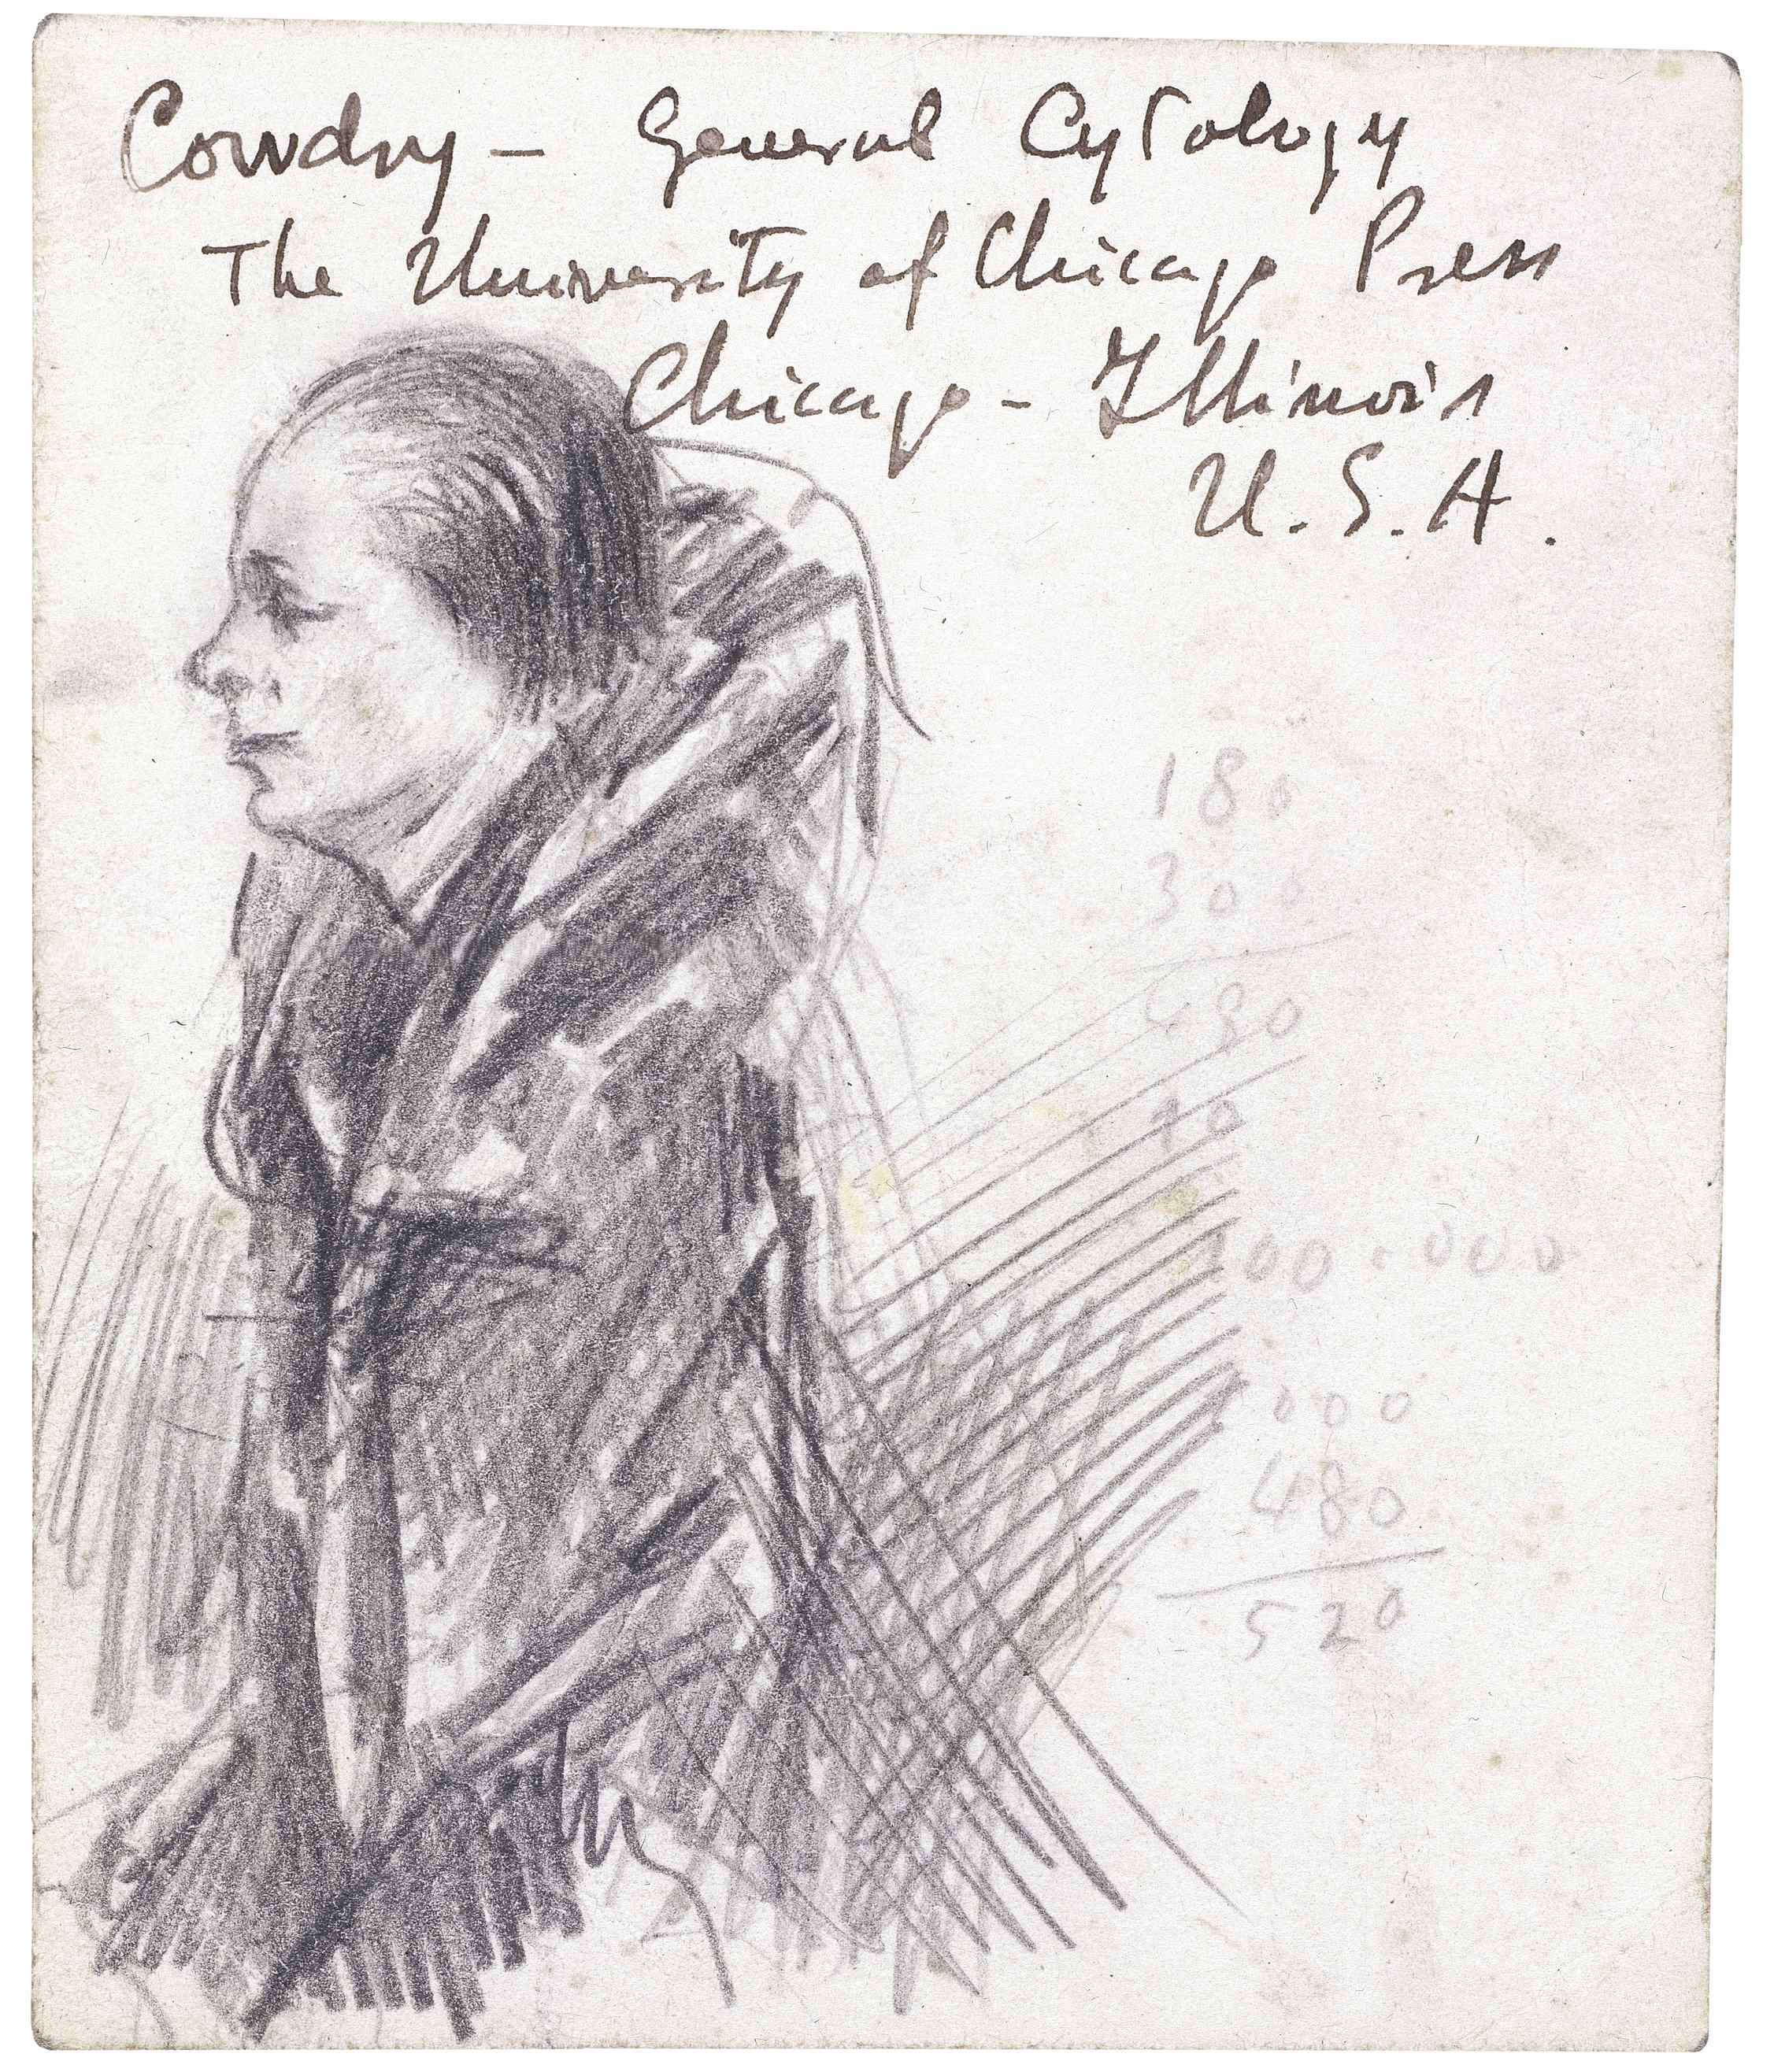 Cowdry – General Cytology
The University of Chicago Press
Chicago – Illinois
U.S.A.
180
300
480
100.000
000
480
520